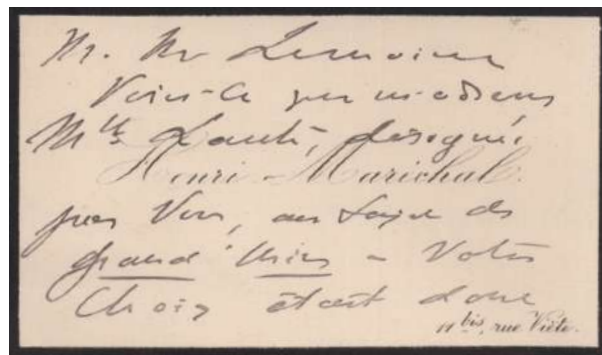 M. Mr Lemoine
Voici ce que m'adresse
Mlle Laute, désignée
Henri Maréchal.
par Vous, au sujet de
grand' chien - Votre
Choix était donc
11 bis, rue Viète.